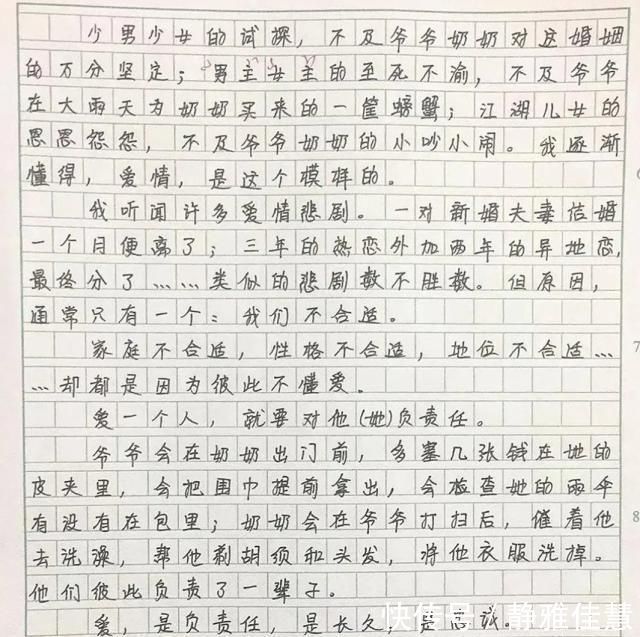 少男少女的试探，不及爷爷奶奶对这婚姻
的万分坚定；男主女主的至死不渝，不及爷爷
在大雨天为奶奶买来的一筐螃蟹；江湖儿女的
恩恩怨怨，不及爷爷奶奶的小吵小闹。我逐渐
懂得，爱情，是这个模样的。
我听闻许多爱情悲剧。一对新婚夫妻结婚
一个月便离了；三年的热恋外加两年的异地恋，
最终分了……类似的悲剧数不胜数。但原因，
通常只有一个：我们不合适。
家庭不合适，性格不合适，地位不合适…
…却都是因为彼此不懂爱。
爱一个人，就要对他(她)负责任。
爷爷会在奶奶出门前，多塞几张钱在她的
皮夹里，会把围巾提前拿出，会检查她的雨伞
有没有在包里；奶奶会在爷爷打扫后，催着他
去洗澡，帮他剃胡须和头发，将他衣服洗掉。
他们彼此负责了一辈子。
爱，是负责任，是长久，
快传号/静雅佳慧
7
8